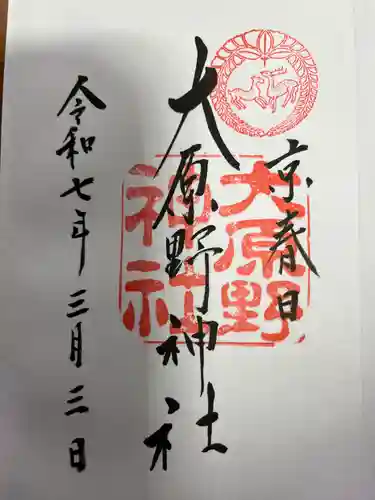 京春日
大原野神社
令和七年三月三日
大原野
神社